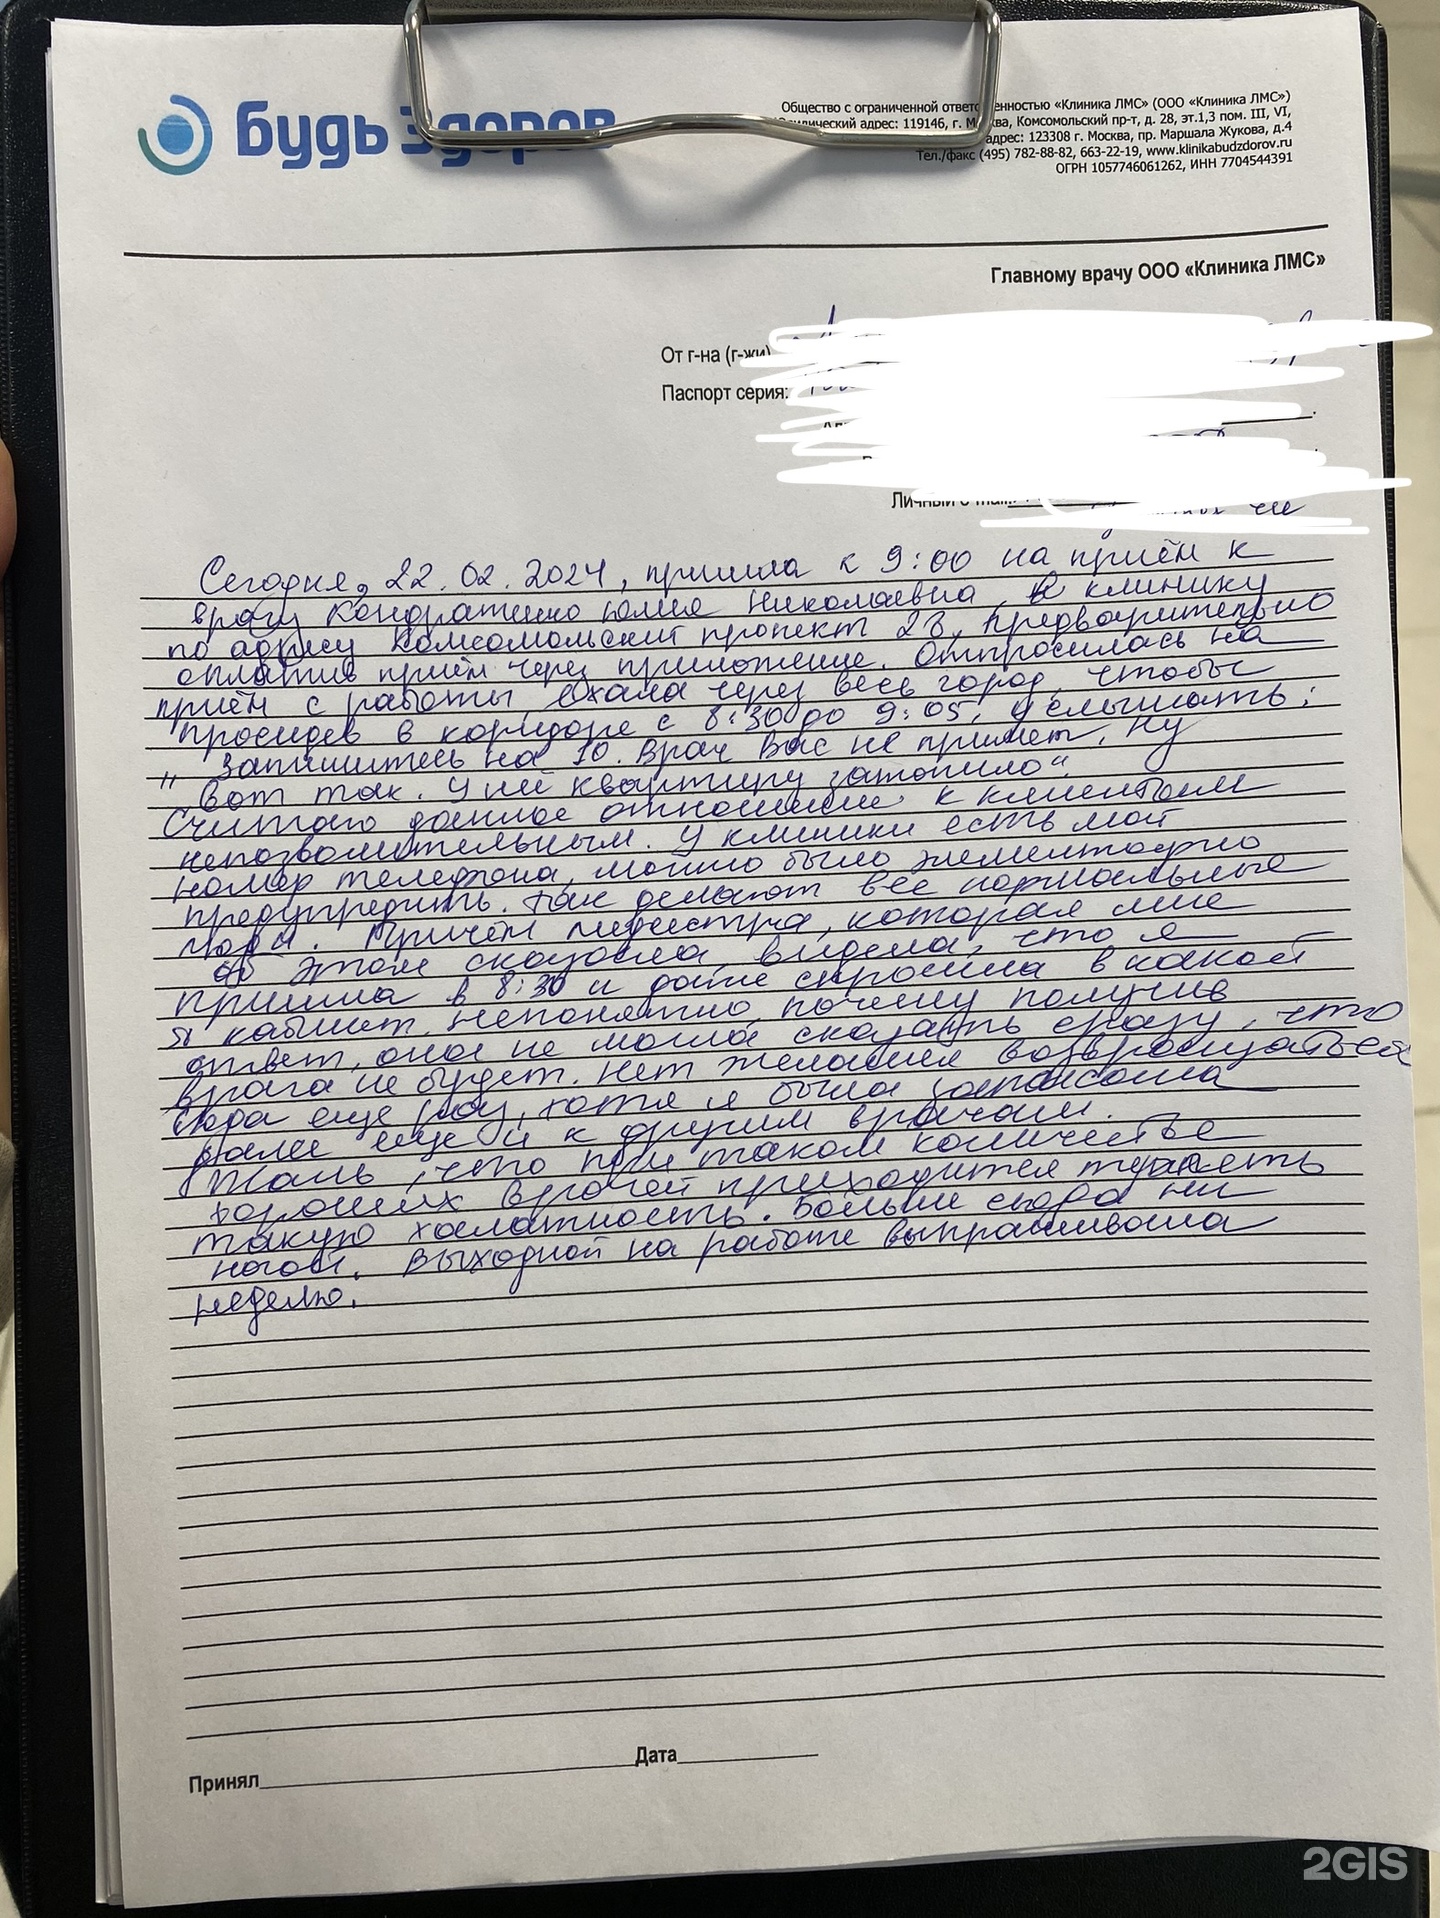 Будь Здоров
Общество с ограниченной ответственностью «Клиника ЛМС» (ООО «Клиника ЛМС»)
Юридический адрес: 119146, г. Москва, Комсомольский пр-т, д. 28, эт.1,3 пом. III, VI,
адрес: 123308 г. Москва, пр. Маршала Жукова, д.4
Тел./факс (495) 782-88-82, 663-22-19, www.klinikabudzdorov.ru
ОГРН 1057746061262, ИНН 7704544391
Главному врачу ООО «Клиника ЛМС»
От г-на (г-жи)
Паспорт серия:
Личный
Сегодня, 22.02.2024, пришла к 9:00 на приём к
врачу Кондратенко Юлия Николаевна, в клинику
по адресу Комсомольский проспект 28, предварительно
оплатив приём через приложение. Отпросилась на
приём с работы, ехала через весь город, чтобы
просидев в коридоре с 8:30 до 9:05, услышать:
" Запишитесь на 10. Врач Вас не примет, ну
вот так. У ней квартиру затопило".
Считаю данное отношение к клиентам
непозволительным. У клиники есть мой
номер телефона, можно было элементарно
предупредить. Так делают все нормальные
люди. Причём медсестра, которая мне
об этом сказала, видела, что я
пришла в 8:30 и даже спросила в какой
я кабинет. Непонятно, почему получив
ответ, она не могла сказать сразу, что
врача не будет. Нет желания возвращаться
сюда ещё раз, хотя я была записана
далее еще и к другим врачам.
Жаль, что при таком количестве
хороших врачей приходится терпеть
такую халатность. Больше сюда ни
ногой. Выходной на работе выпрашивала
неделю.
Принял
Дата
2GIS